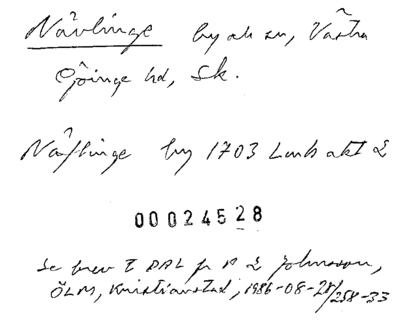 Nävlinge by ok sn, Västra
Göinge hd, Sk.
Näflinge by 1703 Lmb akt 2
00024528
Se brev t DAL fr P E Johnsson,
ÖLM, Kristianstad, 1986-08-28/258-33